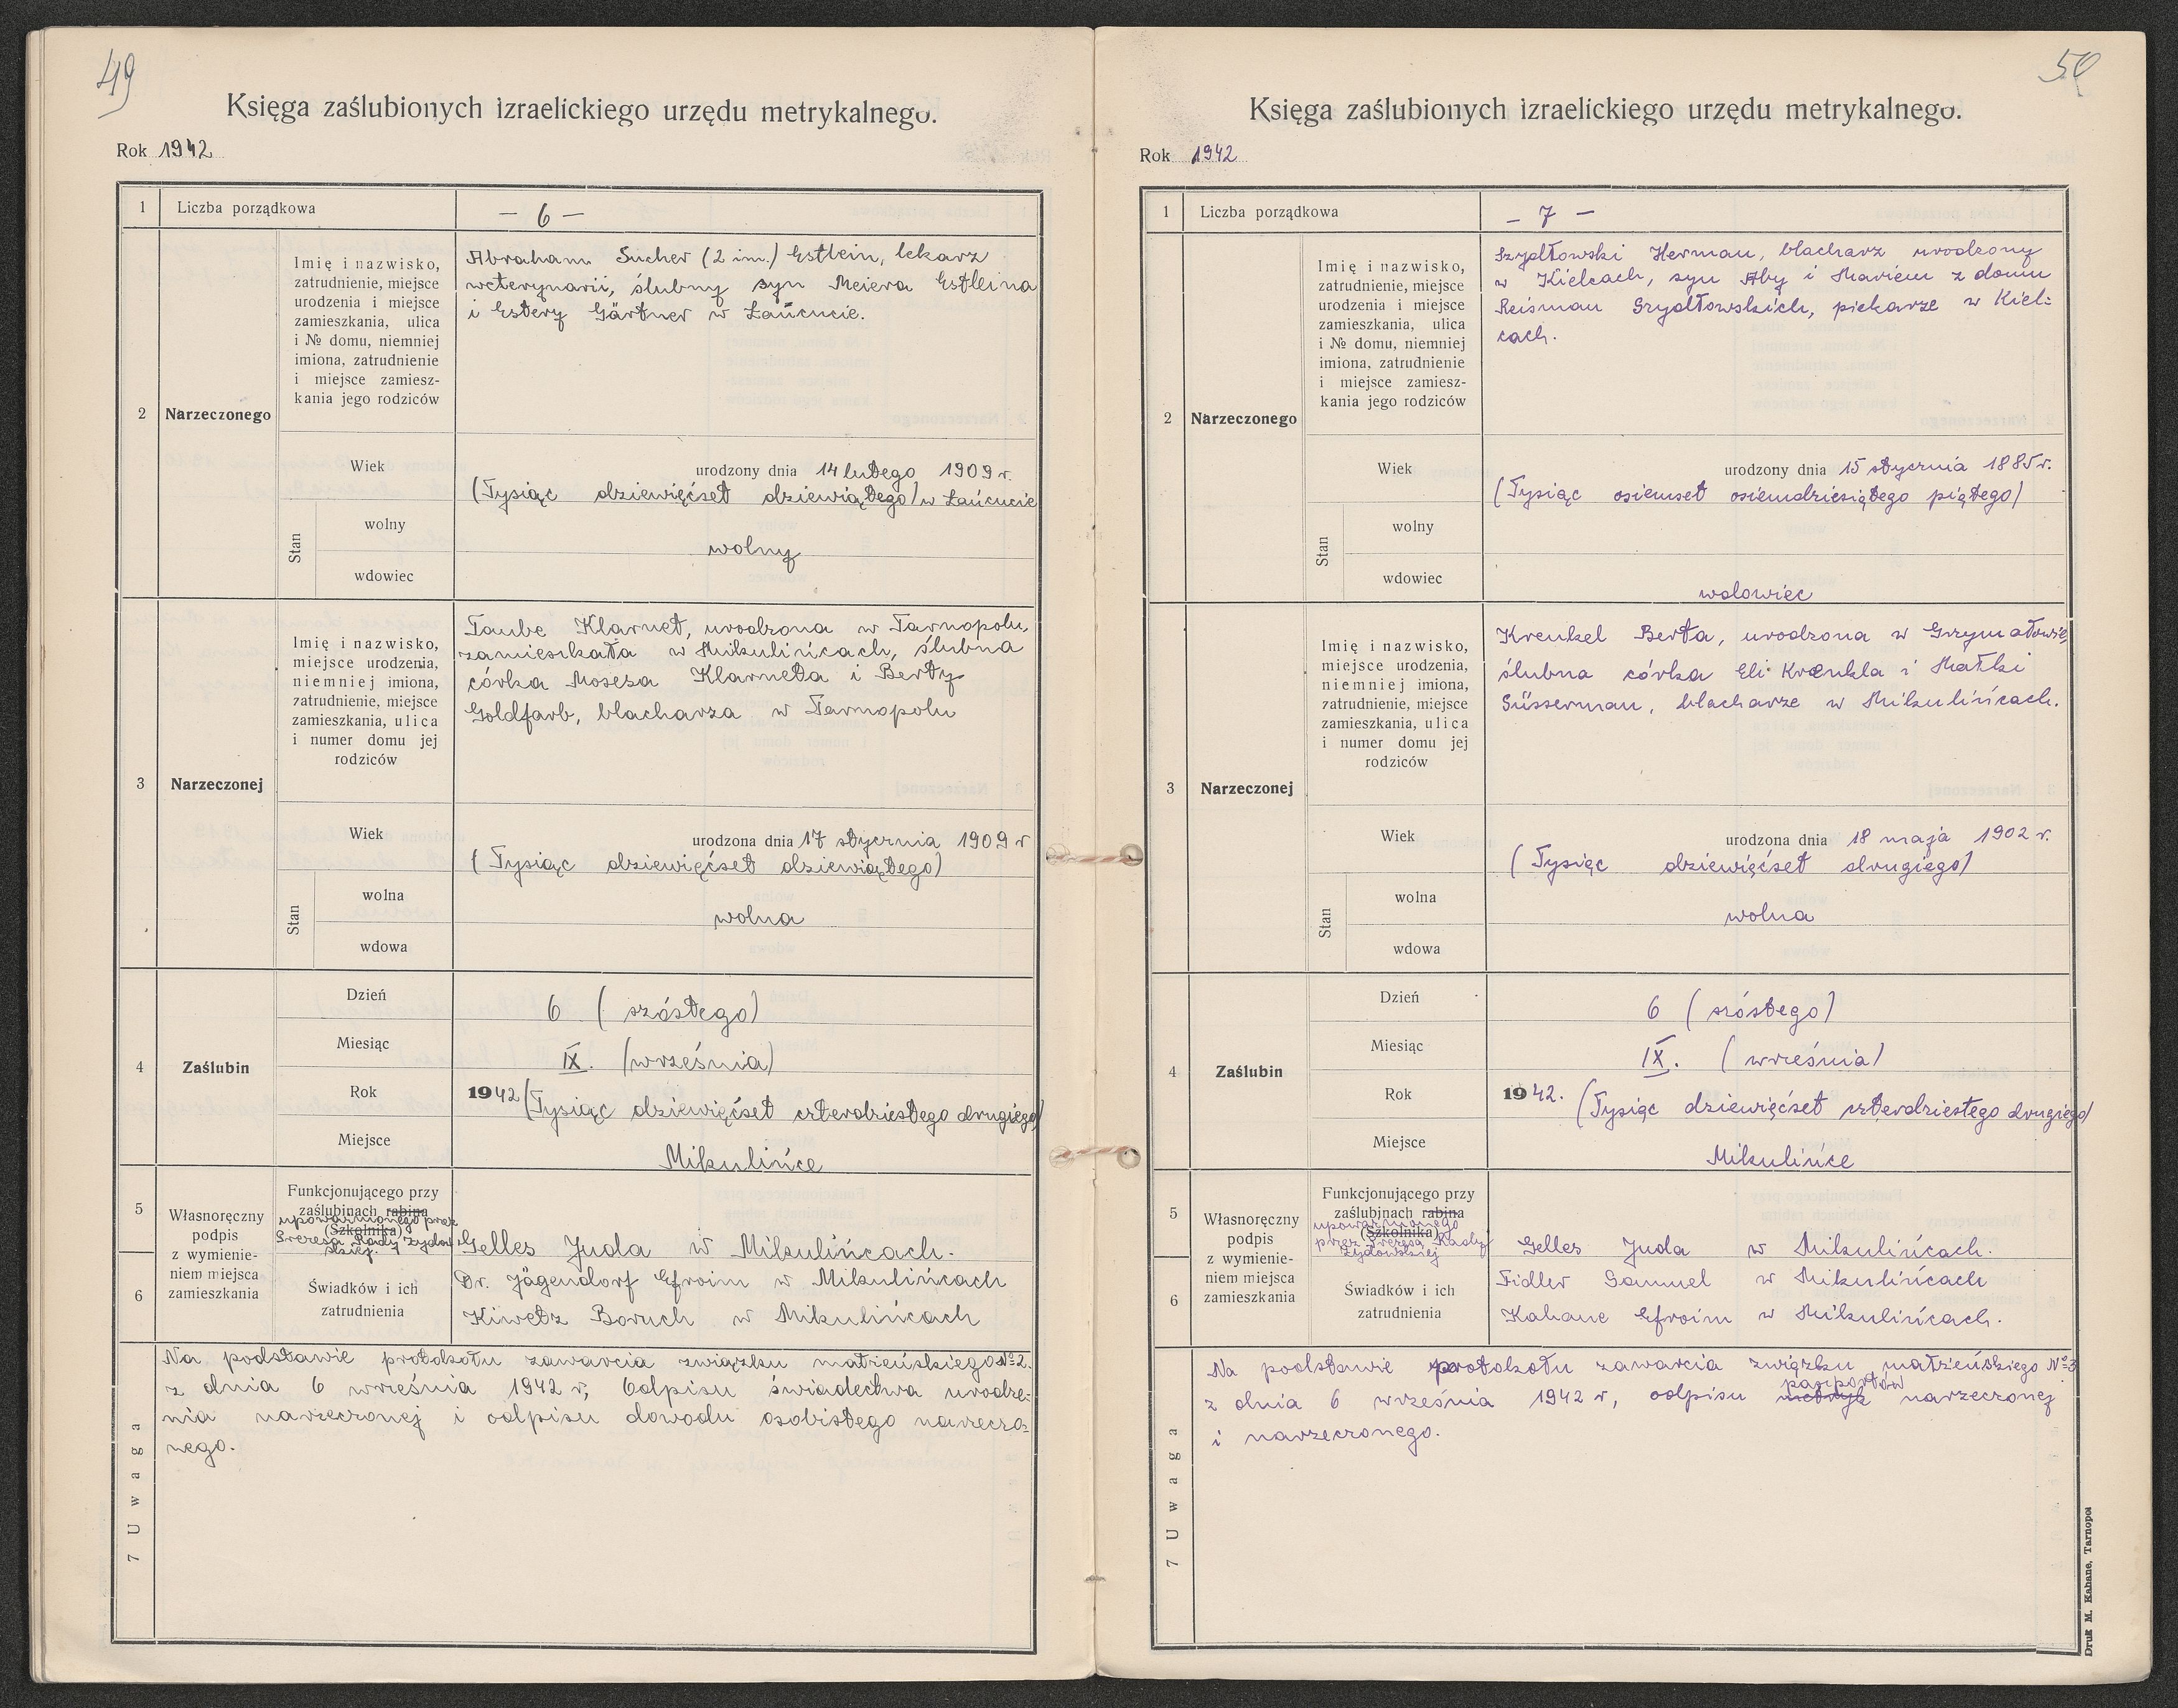 49
Księga zaślubionych izraelickiego urzędu metrykalnego.
Rok 1942
1 Liczba porządkowa — 6 —
2 Narzeczonego
Imię i nazwisko,
zatrudnienie, miejsce
urodzenia i miejsce
zamieszkania, ulica
i № domu, niemniej
imiona, zatrudnienie
i miejsce zamiesz-
kania jego rodziców
Abraham Sucher (2 im.) Estlein, lekarz
weterynarii, ślubny syn Meiera Estleina
i Estery Gärtner w Łańcucie.
Wiek urodzony dnia 14 lutego 1909 r.
(Tysiąc dziewięćset dziewiątego) w Łańcucie
Stan
wolny
wolny
wdowiec
3 Narzeczonej
Imię i nazwisko,
miejsce urodzenia,
niemniej imiona,
zatrudnienie, miejsce
zamieszkania, ulica
i numer domu jej
rodziców
Taube Klarnet, urodzona w Tarnopolu,
zamieszkała w Mikulińcach, ślubna
córka Mosesa Klarneta i Berty
Goldfarb, blacharza w Tarnopolu
Wiek urodzona dnia 17 stycznia 1909 r
(Tysiąc dziewięćset dziewiątego)
Stan
wolna
wolna
wdowa
4 Zaślubin
Dzień 6 (szóstego)
Miesiąc IX. (września)
Rok 1942 (Tysiąc dziewięćset czterdziestego drugiego)
Miejsce Mikulińce
5
6
Własnoręczny
podpis
z wymienie-
niem miejsca
zamieszkania
Funkcjonującego przy
zaślubinach rabina
upoważnionego przez
(Szkolnika)
Prezesa Rady Żydow-
skiej.
Gelles Juda w Mikulińcach.
Świadków i ich
zatrudnienia
Dr. Jägendorf Efroim w Mikulińcach
Kiwetz Boruch w Mikulińcach
7 Uwaga
Na podstawie protokołu zawarcia związku małżeńskiego № 2.
z dnia 6 września 1942 r, Odpisu świadectwa urodze-
nia narzeczonej i odpisu dowodu osobistego narzeczo-
nego.
50
Księga zaślubionych izraelickiego urzędu metrykalnego.
Rok 1942
1 Liczba porządkowa – 7 –
2 Narzeczonego
Imię i nazwisko,
zatrudnienie, miejsce
urodzenia i miejsce
zamieszkania, ulica
i № domu, niemniej
imiona, zatrudnienie
i miejsce zamiesz-
kania jego rodziców
Szydłowski Herman, blacharz urodzony
w Kielcach, syn Aby i Mariem z domu
Reisman Szydłowskich, piekarze w Kiel-
cach.
Wiek urodzony dnia 15 stycznia 1885 r.
(Tysiąc osiemset osiemdziesiątego piątego)
Stan
wolny
wdowiec
wdowiec
3 Narzeczonej
Imię i nazwisko,
miejsce urodzenia,
niemniej imiona,
zatrudnienie, miejsce
zamieszkania, ulica
i numer domu jej
rodziców
Krenkel Berta, urodzona w Grzymałowie,
ślubna córka Eli Krenkla i Małki
Süsserman, blacharze w Mikulińcach.
Wiek urodzona dnia 18 maja 1902 r.
(Tysiąc dziewięćset drugiego)
Stan
wolna
wolna
wdowa
4 Zaślubin
Dzień 6 (szóstego)
Miesiąc IX. (września)
Rok 1942. (Tysiąc dziewięćset czterdziestego drugiego)
Miejsce Mikulińce
5
6
Własnoręczny
podpis
z wymienie-
niem miejsca
zamieszkania
Funkcjonującego przy
zaślubinach rabina
upoważnionego
(Szkolnika)
przez Prezesa Rady
Żydowskiej
Gelles Juda w Mikulińcach.
Świadków i ich
zatrudnienia
Fidler Samuel w Mikulińcach
Kahane Efroim w Mikulińcach.
7 Uwaga
Na podstawie protokołu zawarcia związku małżeńskiego № 3
z dnia 6 września 1942 r, odpisu metryk paszportów narzeczonej
i narzeczonego.
Druk M. Kahane, Tarnopol